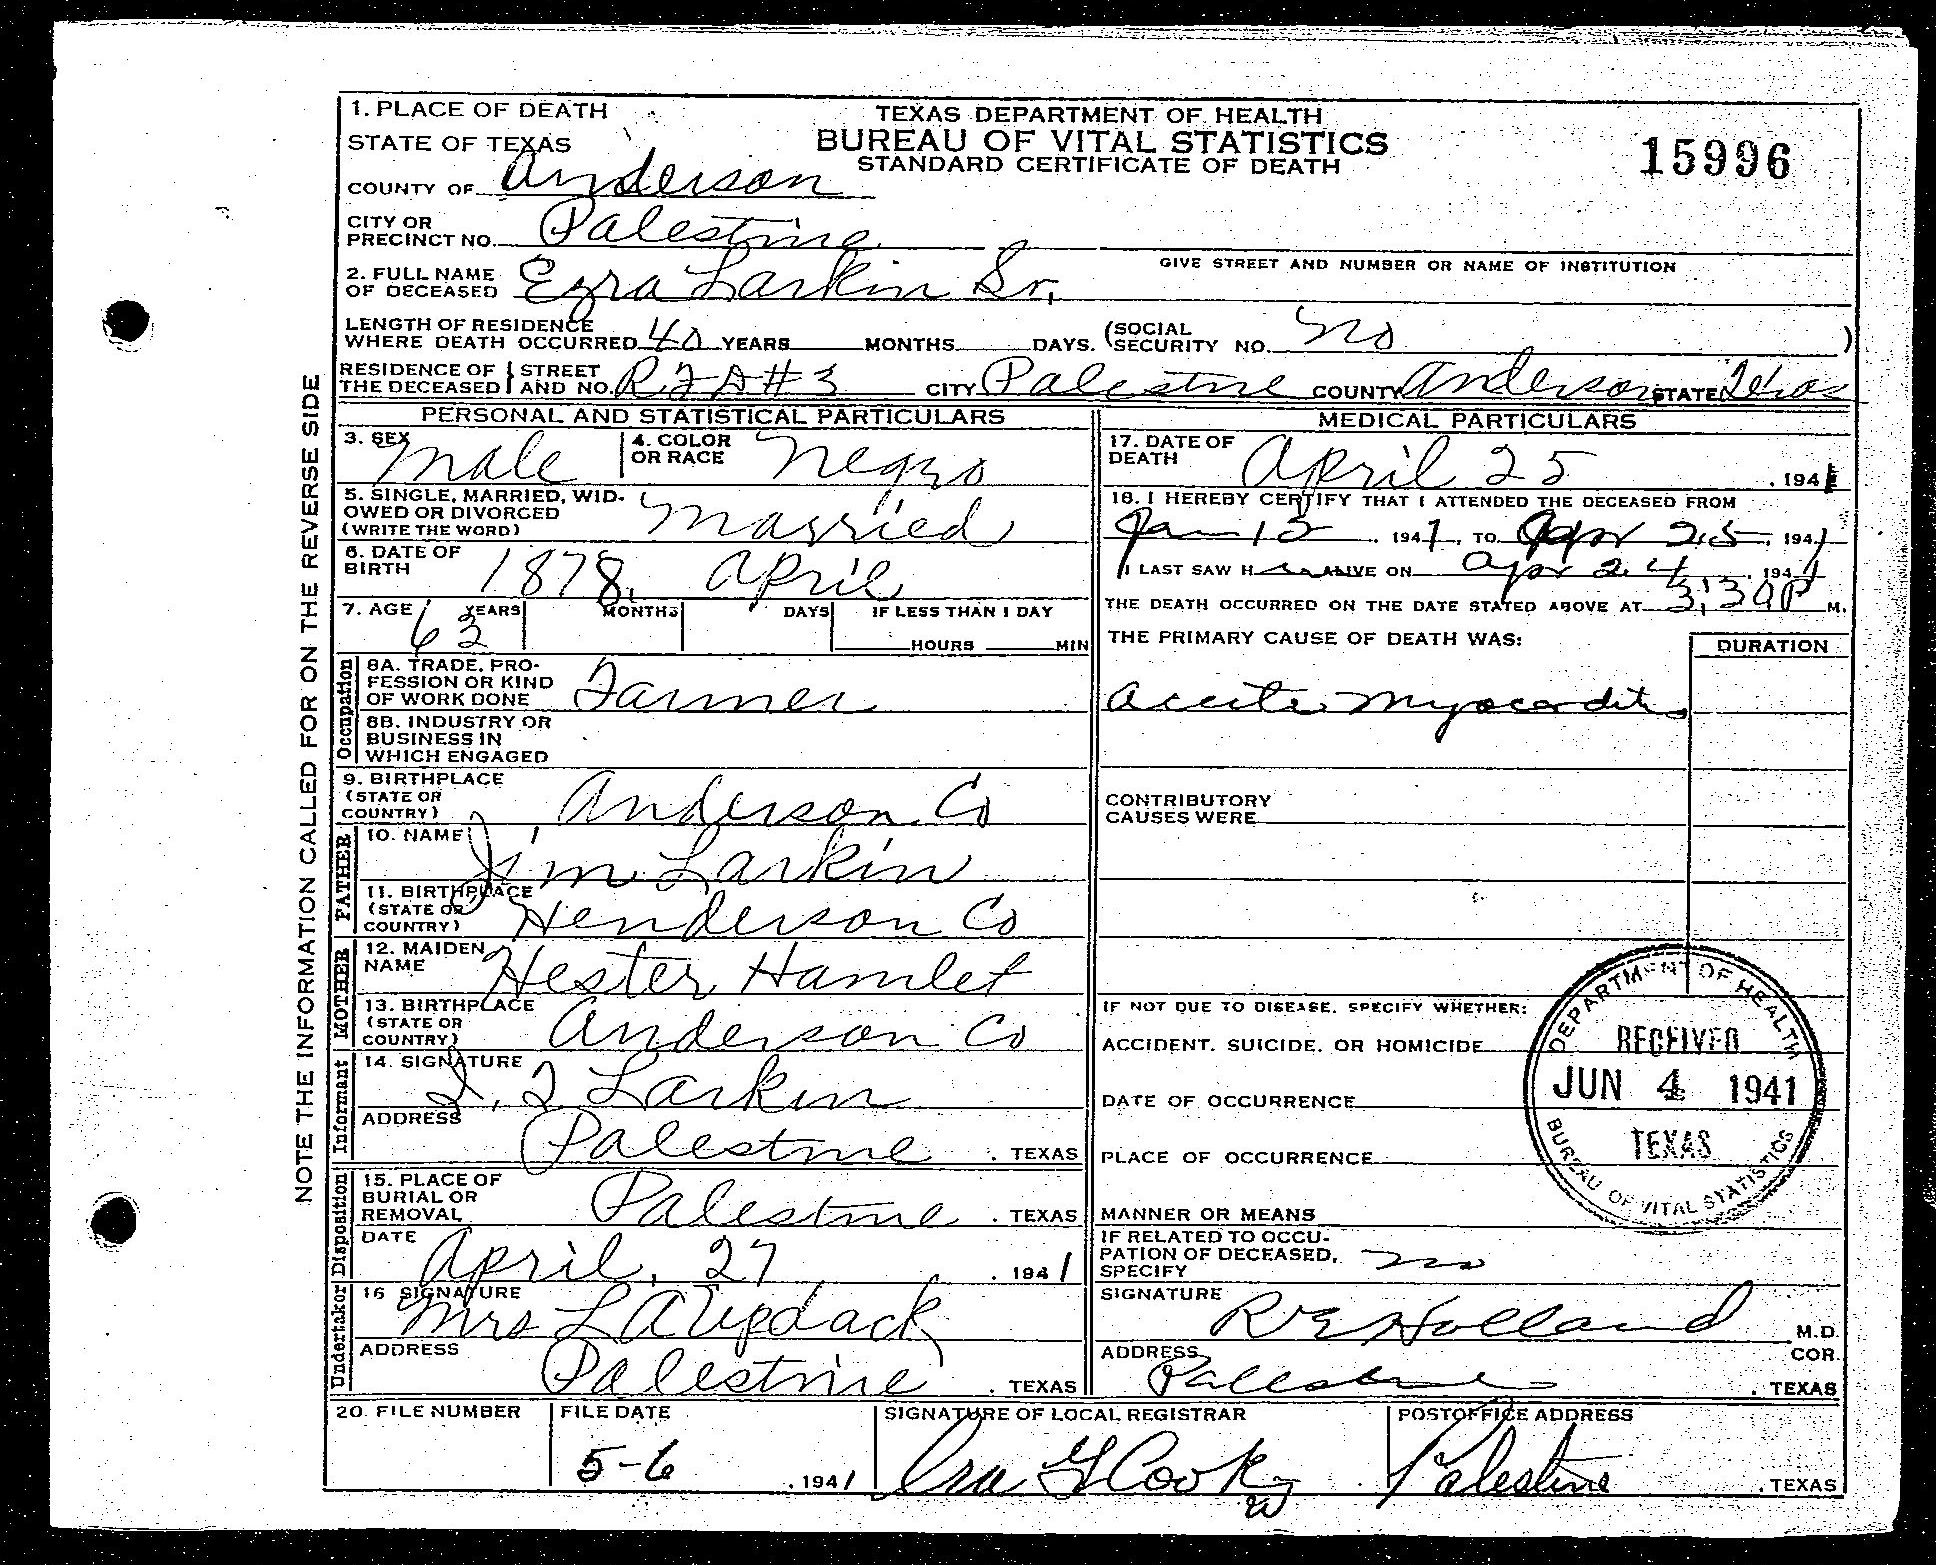 1. PLACE OF DEATH
STATE OF TEXAS
COUNTY OF Anderson
TEXAS DEPARTMENT OF HEALTH
BUREAU OF VITAL STATISTICS
STANDARD CERTIFICATE OF DEATH
15996
CITY OR PRECINCT NO. Palestine
GIVE STREET AND NUMBER OR NAME OF INSTITUTION
2. FULL NAME OF DECEASED Ezra Larkin Sr.
LENGTH OF RESIDENCE WHERE DEATH OCCURRED 40 YEARS MONTHS DAYS. (SOCIAL SECURITY NO. no )
RESIDENCE OF THE DECEASED } STREET AND NO. RFD #3 CITY Palestine COUNTY Anderson STATE Texas
NOTE THE INFORMATION CALLED FOR ON THE REVERSE SIDE
PERSONAL AND STATISTICAL PARTICULARS
3. SEX Male 4. COLOR OR RACE Negro
5. SINGLE, MARRIED, WIDOWED OR DIVORCED (WRITE THE WORD) Married
6. DATE OF BIRTH 1878, April
7. AGE 63 YEARS MONTHS DAYS IF LESS THAN 1 DAY
HOURS MIN
Occupation
8A. TRADE, PROFESSION OR KIND OF WORK DONE Farmer
8B. INDUSTRY OR BUSINESS IN WHICH ENGAGED
9. BIRTHPLACE (STATE OR COUNTRY) Anderson Co
FATHER
10. NAME Jim Larkin
11. BIRTHPLACE (STATE OR COUNTRY) Henderson Co
MOTHER
12. MAIDEN NAME Hester Hamlet
13. BIRTHPLACE (STATE OR COUNTRY) Anderson Co
Informant
14. SIGNATURE Larkin
ADDRESS Palestine . TEXAS
Disposition
15. PLACE OF BURIAL OR REMOVAL Palestine . TEXAS
DATE April, 27 . 1941
Undertaker
16 SIGNATURE Mrs L A Updack
ADDRESS Palestine . TEXAS
MEDICAL PARTICULARS
17. DATE OF DEATH April 25 . 1941
18. I HEREBY CERTIFY THAT I ATTENDED THE DECEASED FROM
Jan 1941, TO Apr 25, 1941
I LAST SAW H ALIVE ON Apr 24 1941
THE DEATH OCCURRED ON THE DATE STATED ABOVE AT 3:30P M.
THE PRIMARY CAUSE OF DEATH WAS: DURATION
Acute Myocarditis
CONTRIBUTORY CAUSES WERE
IF NOT DUE TO DISEASE, SPECIFY WHETHER:
ACCIDENT, SUICIDE, OR HOMICIDE
DATE OF OCCURRENCE
PLACE OF OCCURRENCE
MANNER OR MEANS
IF RELATED TO OCCUPATION OF DECEASED, SPECIFY no
SIGNATURE R E Holland M.D.
COR.
ADDRESS Palestine . TEXAS
DEPARTMENT OF HEALTH
RECEIVED
JUN 4 1941
TEXAS
BUREAU OF VITAL STATISTICS
20. FILE NUMBER FILE DATE SIGNATURE OF LOCAL REGISTRAR POSTOFFICE ADDRESS
5-6 . 1941 Ira G Cook Palestine . TEXAS